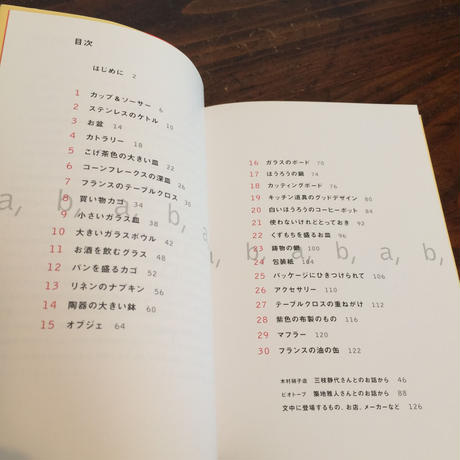 目次
はじめに 2
1 カップ＆ソーサー 6
2 ステンレスのケトル 10
3 お盆 14
4 カトラリー 18
5 こげ茶色の大きい皿 22
6 コーンフレークスの深皿 26
7 フランスのテーブルクロス 30
8 買い物カゴ 34
9 小さいガラス皿 38
10 大きいガラスボウル 42
11 お酒を飲むグラス 48
12 パンを盛るカゴ 52
13 リネンのナプキン 56
14 陶器の大きい鉢 60
15 オブジェ 64
16 ガラスのボード 70
17 ほうろうの鍋 74
18 カッティングボード 76
19 キッチン道具のグッドデザイン 80
20 白いほうろうのコーヒーポット 84
21 使わないけれどとっておき 92
22 くずもちを盛るお皿 96
23 鋳物の鍋 100
24 包装紙 104
25 パッケージにひきつけられて 106
26 アクセサリー 110
27 テーブルクロスの重ねがけ 112
28 紫色の布製のもの 116
29 マフラー 120
30 フランスの油の缶 122
木村硝子店 三枝静代さんとのお話から 46
ビオトープ 築地雅人さんとのお話から 88
文中に登場するもの、お店、メーカーなど 126
a, b, a, b, a
a, b, a, b, a, b,